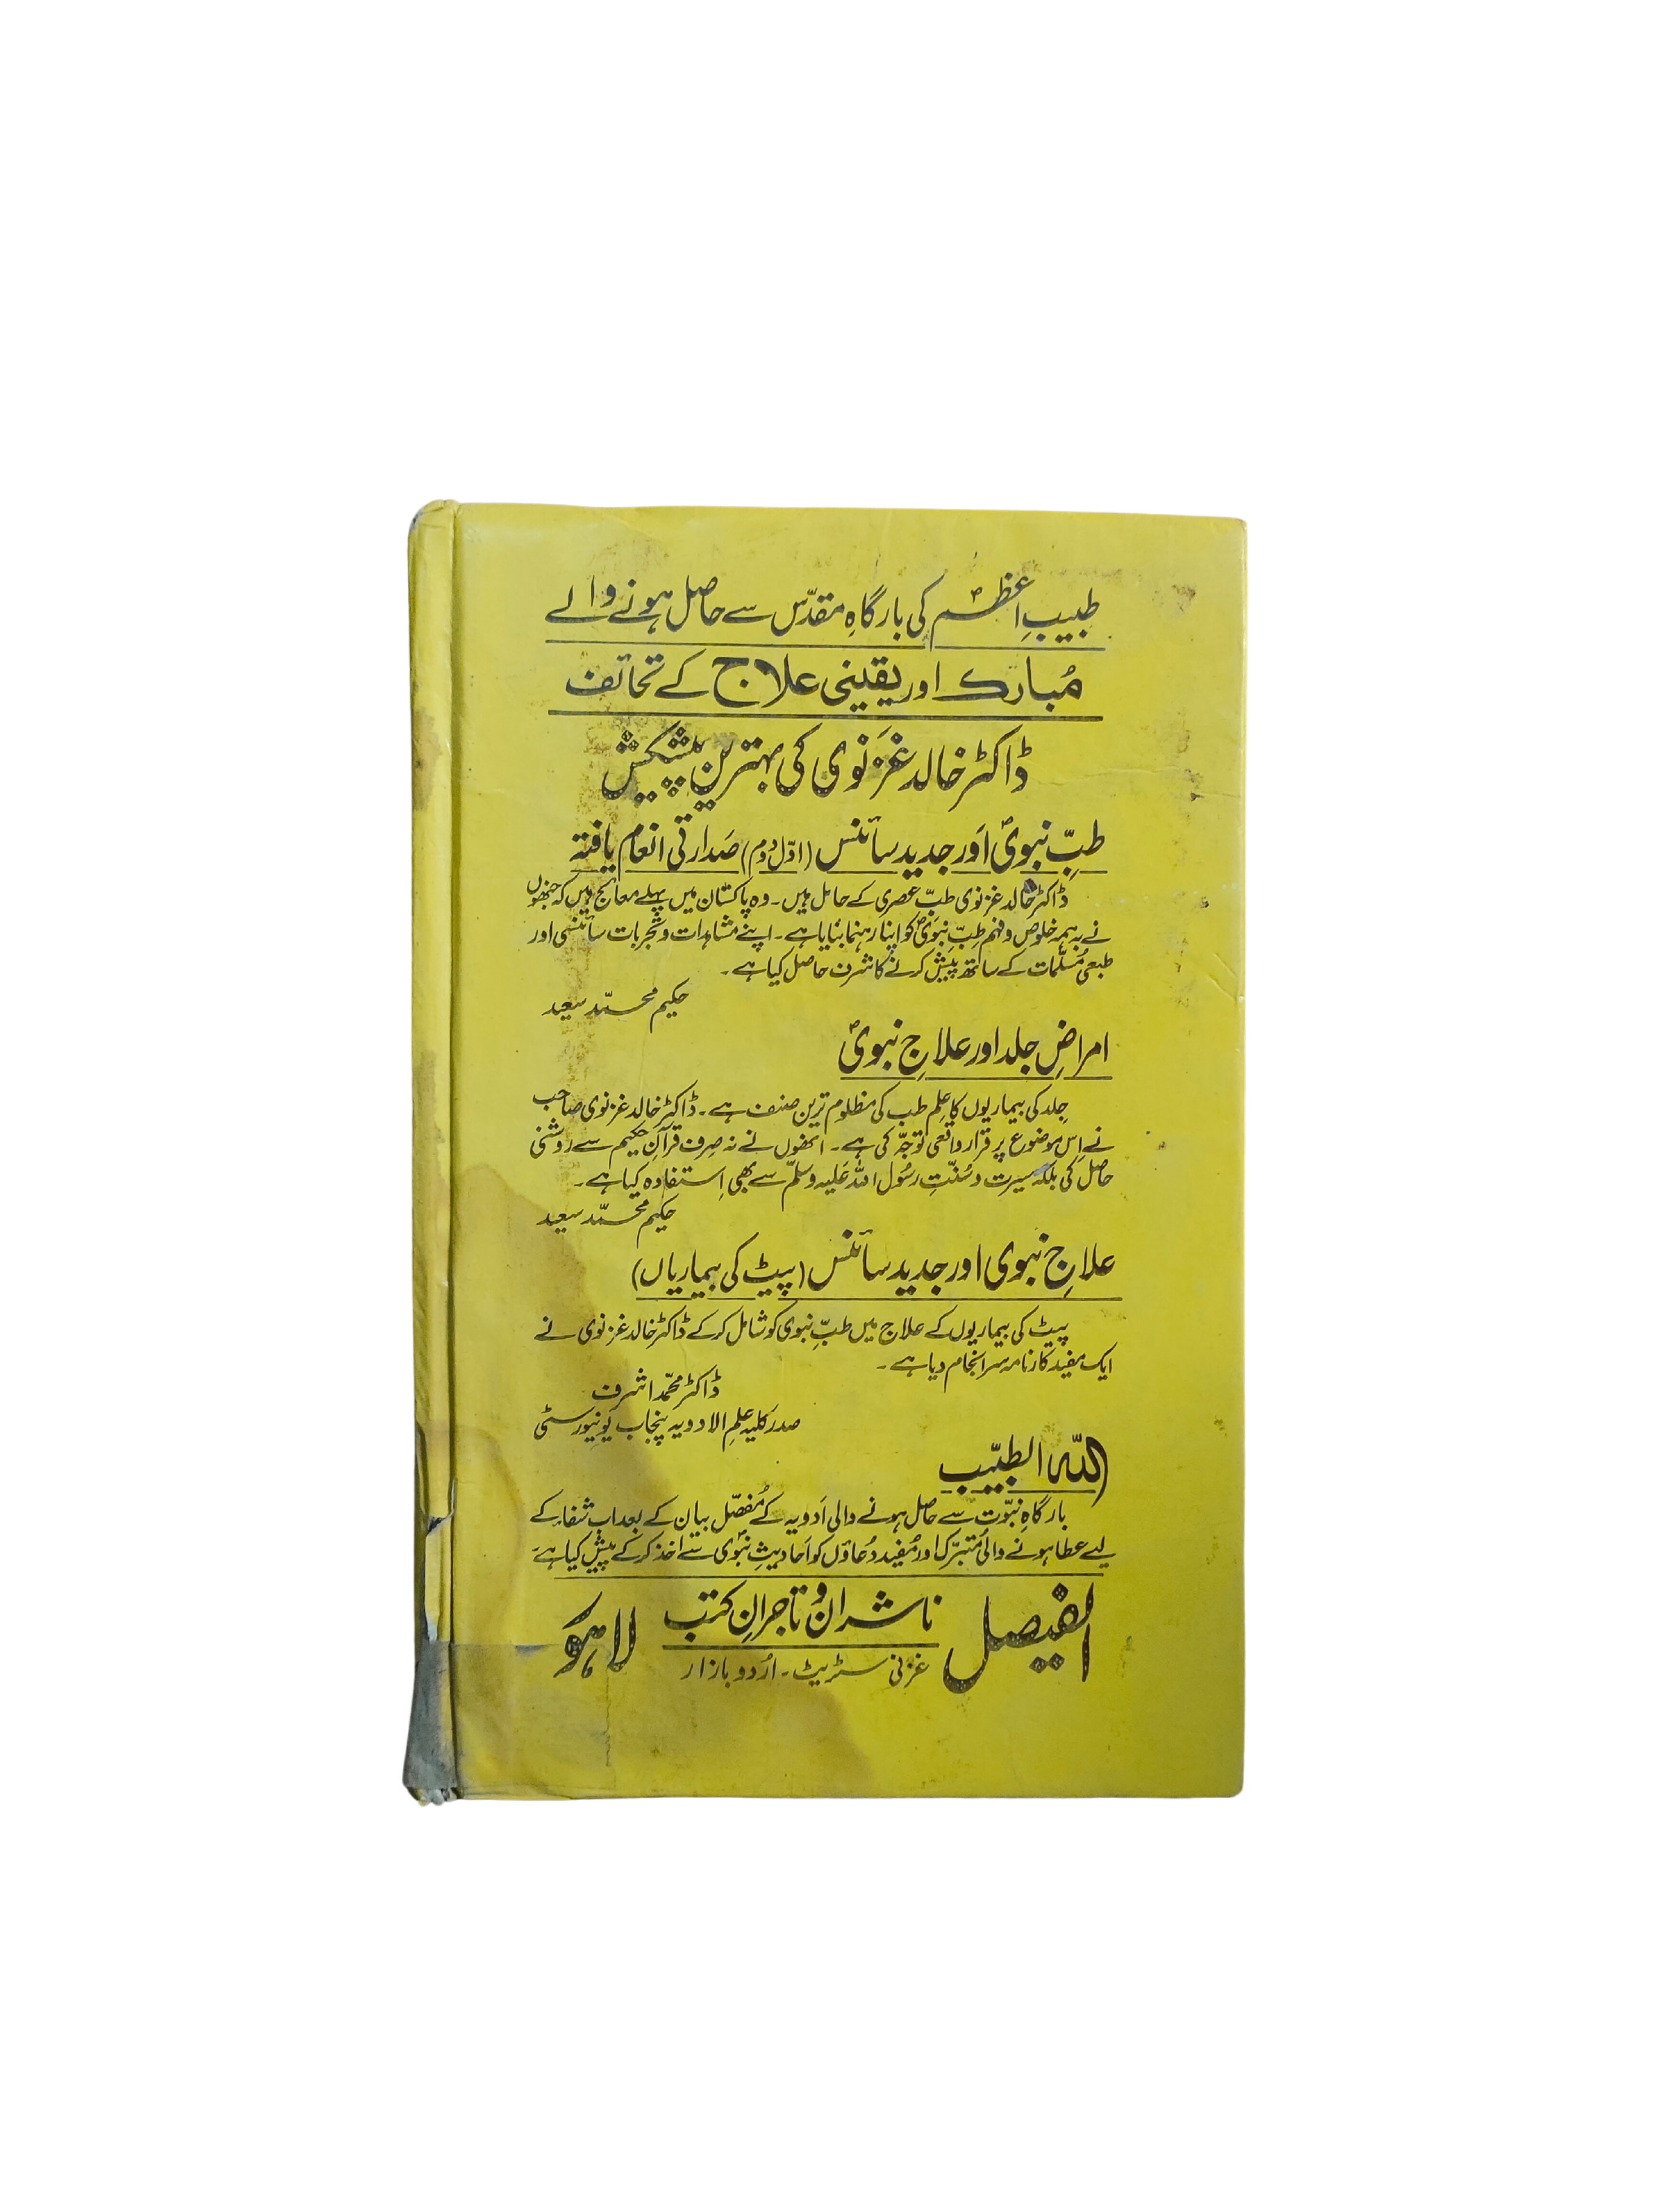 طبیبِ اعظمؐ کی بارگاہِ مقدّس سے حاصل ہونے والے
مُبارک اور یقینی علاج کے تحائف
ڈاکٹر خالد غزنوی کی بہترین پیشکش
طبِّ نبویؐ اور جدید سائنس (اوّل دوم) صَدارتی انعام یافتہ
ڈاکٹر خالد غزنوی طبِّ عصری کے حامل ہیں۔ وہ پاکستان میں پہلے معالج ہیں کہ جنھوں
نے بہ ہمہ خلوص و فہم طِبِّ نبویؐ کو اپنا رہنما بنایا ہے۔ اپنے مشاہدات و تجربات سائنسی اور
طبعی مُسلّمات کے ساتھ پیش کرنے کا شرف حاصل کیا ہے۔
حکیم محمّد سعید
امراضِ جلد اور علاجِ نبویؐ
جِلد کی بیماریوں کا عِلم طب کی مظلوم ترین صنف ہے۔ ڈاکٹر خالد غزنوی صاحب
نے اِس موضوع پر قرار واقعی توجّہ کی ہے۔ انھوں نے نہ صرف قرآنِ حکیم سے روشنی
حاصل کی بلکہ سیرت و سُنّتِ رسُول اللہ عَلیہ وسلّم سے بھی اِستفادہ کیا ہے۔
حکیم محمّد سعید
علاجِ نبوی اور جدید سائنس (پیٹ کی بیماریاں)
پیٹ کی بیماریوں کے علاج میں طبِّ نبوی کو شامل کر کے ڈاکٹر خالد غزنوی نے
ایک مفید کارنامہ سر انجام دیا ہے۔
ڈاکٹر محمّد اشرف
صدر کلیہ علم الادویہ پنجاب یونیورسٹی
اللہ الطبیّب
بارگاہِ نبوّت سے حاصل ہونے والی اَدویہ کے مُفصّل بیان کے بعد اب شفاء کے
لیے عطا ہونے والی مُتبرّک اور مُفید دُعاؤں کو اَحادیثِ نبویؐ سے اخذ کر کے پیش کیا ہے۔
الفیصل ناشران و تاجرانِ کتب لاہور
غزنی سٹریٹ۔ اُردو بازار